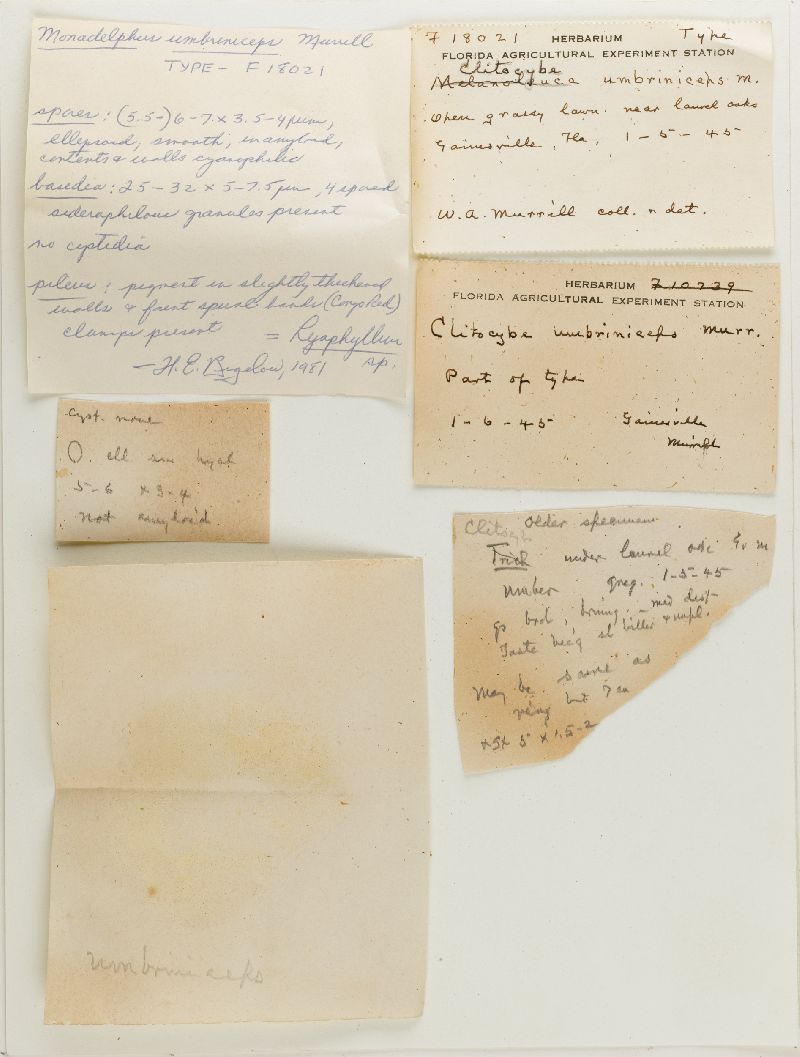 Monadelphus umbriniceps Murrill
TYPE - F 18021
spores: (5.5-) 6-7 x 3.5-4 µm,
ellipsoid, smooth, inamyloid,
contents & walls cyanophilic
basidia: 25-32 x 5-7.5 µm, 4 spored
siderophilous granules present
no cystidia
pileus: pigment in slightly thickened
walls & faint spiral bands (Congo Red)
clamps present = Lyophyllum
sp.
- H. E. Bigelow, 1981
F 18021 HERBARIUM Type
FLORIDA AGRICULTURAL EXPERIMENT STATION
Clitocybe
Melanoleuca umbriniceps M.
Open grassy lawn near laurel oaks
Gainesville, Fla, 1-5-45
W. A. Murrill coll. & det.
HERBARIUM F 10239
FLORIDA AGRICULTURAL EXPERIMENT STATION
Clitocybe umbriniceps Murr.
Part of type
1-6-45 Gainesville
Murrill
cyst. none
O. ell sm hyal
5-6 x 3-4
not amyloid
Clitocyb Older specimen
Trich under laurel oak Gv M
Umber greg. 1-5-45
May be same as
x 5 x 1.5-2
umbriniceps